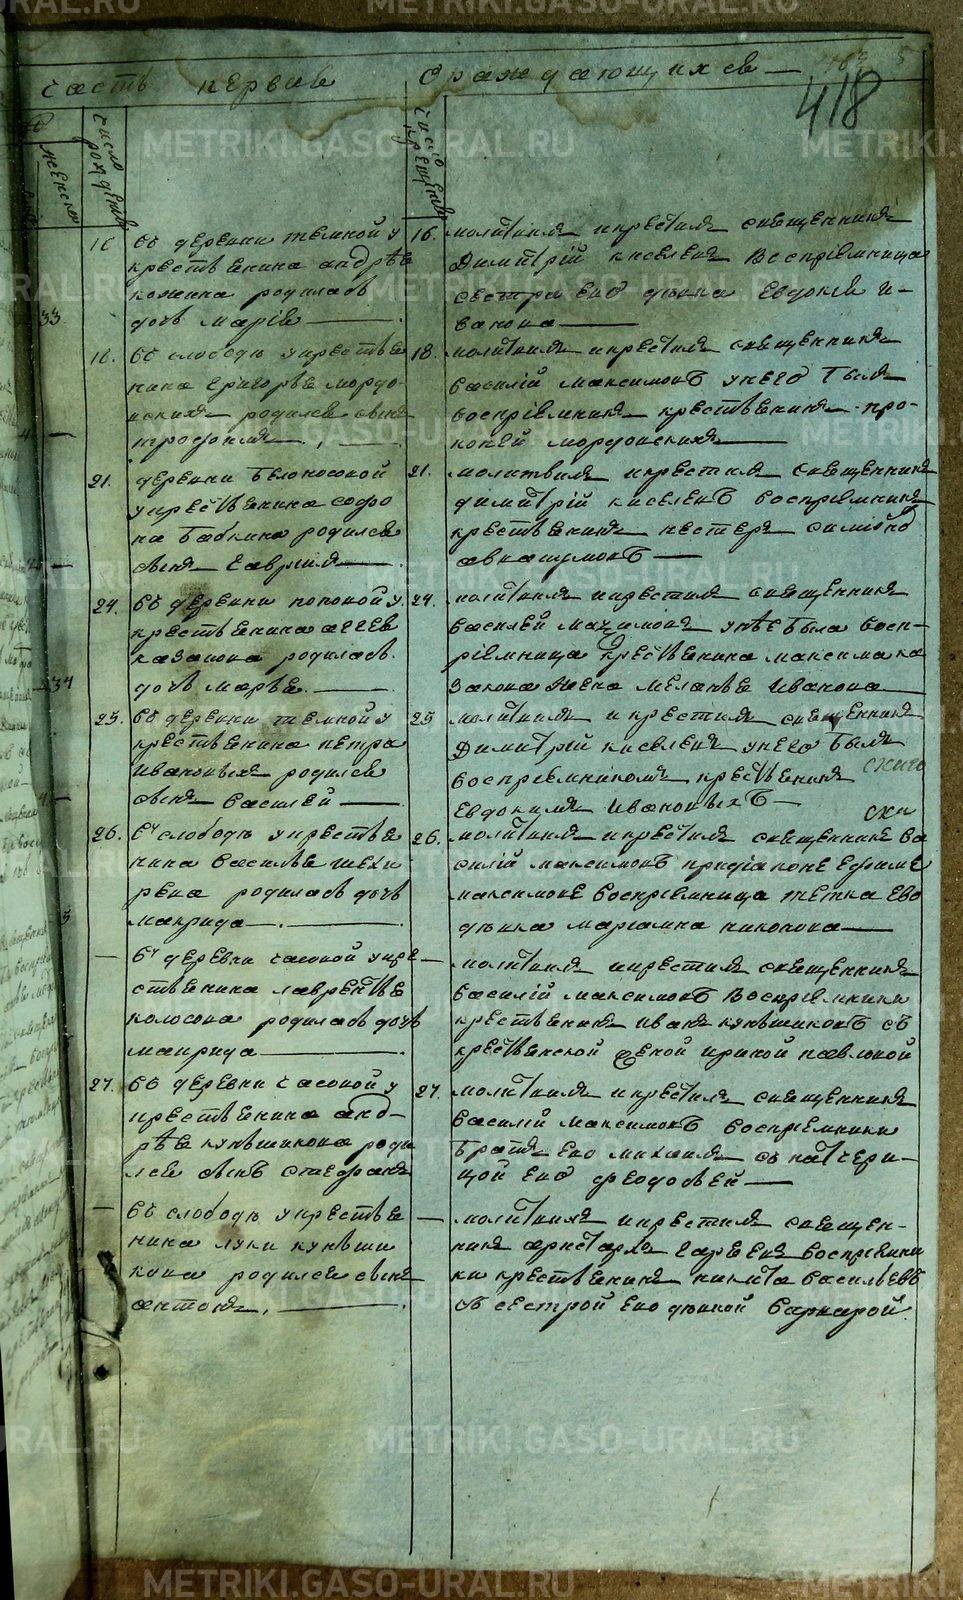 часть первая О раждающихся
418
женска
число рождения
число крещения
16 въ деревни темной у
крестьянина андрѣя
кожина родилась
33
дочь марія
16. молитвилъ икрестилъ священникъ
Димитрій киселевъ Воспріемница
сестра его дѣвка Евдокія и-
ванова
18. въ слободѣ укрестья
нина григорья мордо-
вскихъ родился сынъ
трофимъ
18. молитвилъ икрестилъ священникъ
василій максимовъ унего былъ
воспріемникъ крестьянинъ про-
копей мордовскихъ
21. деревни белоносовой
укрестьянина софро
на бабкина родился
сынъ гавріилъ
21. молитвилъ икрестилъ священникъ
димитрій киселевъ воспріемникъ
крестьянинъ нестеръ
24. въ деревни поповой у
крестьянина аггея
казакова родилась
34
дочь марья
24. молитвилъ икрестилъ священникъ
василей максимовъ унѣе была восп-
ріемница крестьянина максима ка
закова жена меланья иванова
25. въ деревни темной у
крестьянина петра
ивановыхъ родился
сынъ василей
25 молитвилъ икрестилъ священникъ
Димитрій киселевъ унего былъ
воспріемникомъ крестьянинъ
евдокимъ ивановыхъ
26. въ слободѣ укрестья
нина василья шеки
рева родилась дочь
5
макрида
26. молитвилъ икрестилъ священникъ ва
силій максимовъ придіаконе ефиме
максимове воспріемница тетка ево
дѣвка маріамна никонова
— въ деревни часовой укре
стьянина лаврентья
колосова родилась дочь
макрида
— молитвилъ икрестилъ священникъ
василій максимовъ Воспріемники
крестьянинъ иванъ кунщиковъ съ
крестьянской женой ириной павловой
27. въ деревни часовой у
крестьянина анд-
рѣя кунщикова роди
лся сынъ стефанъ
27. молитвилъ икрестилъ священникъ
василій максимовъ воспріемники
братъ его михаилъ съ патчери-
цой его феодосьей
— въ слободѣ укрестья
нина луки кунщи
кова родился сынъ
антонъ.
— молитвилъ икрестилъ священ-
никъ аристархъ гаряевъ воспріемни
ки крестьянинъ никита васильевъ
съ сестрой его дѣвкой варварой
METRIKI.GASO-URAL.RU